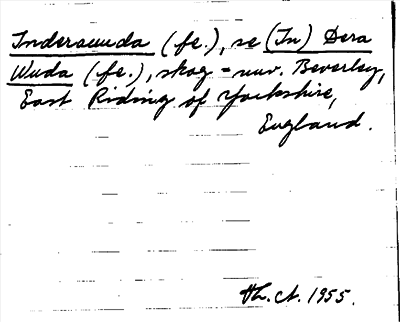 Inderauuda (fe.), se (In) Dera
Wuda (fe.), skog = nuv. Beverley,
East Riding of Yorkshire,
England.
H. Ct. 1955.